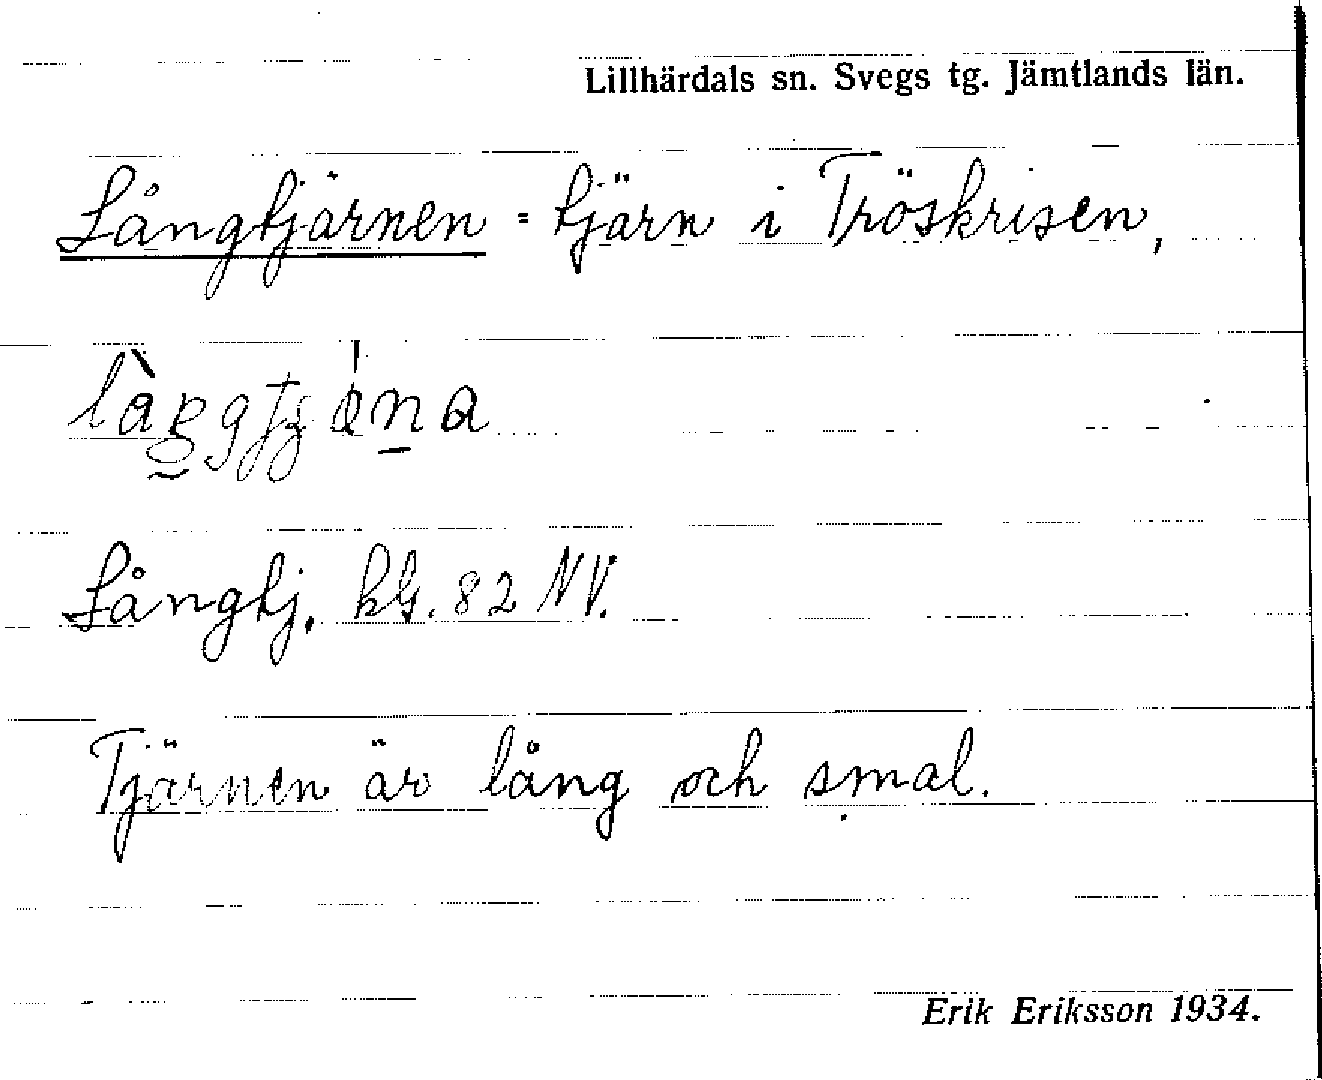 Lillhärdals sn. Svegs tg. Jämtlands län.
Långtjärnen = tjärn i Tröskrisen,
Långtj. kbl. 82 NV.
Tjärnen är lång och smal.
Erik Eriksson 1934.